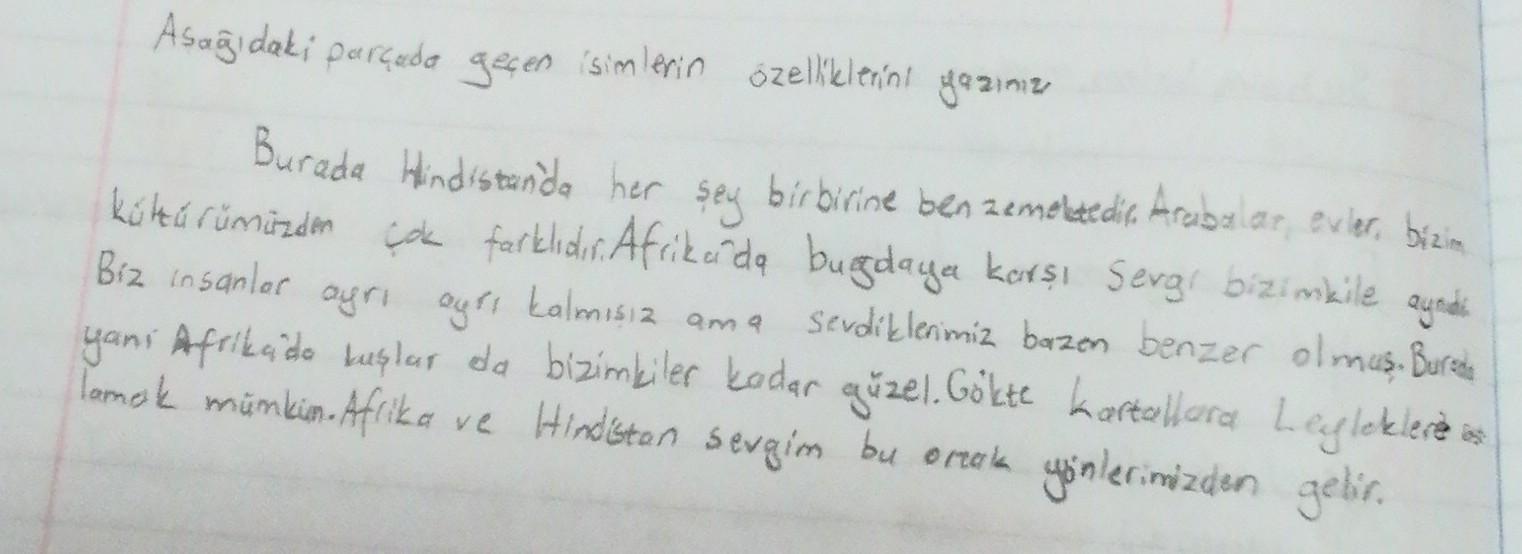 Asağıdaki parçada geçen isimlerin özelliklerini yazınız
Burada Hindistan'da her şey birbirine benzemektedir. Arabalar, evler, bizim
kültürümüzden çok farklıdır. Afrika'da bugdaya karşı sevgi bizimkile aynıdı
Biz insanlar ayrı ayrı kalmısız ama sevdiklerimiz bazen benzer olmuş. Burada
yani Afrika'da kuşlar da bizimkiler kadar güzel. Gökte kartallara Leyleklere
lamak mümkün. Afrika ve Hindistan sevgim bu ortak yönlerimizden gelir.